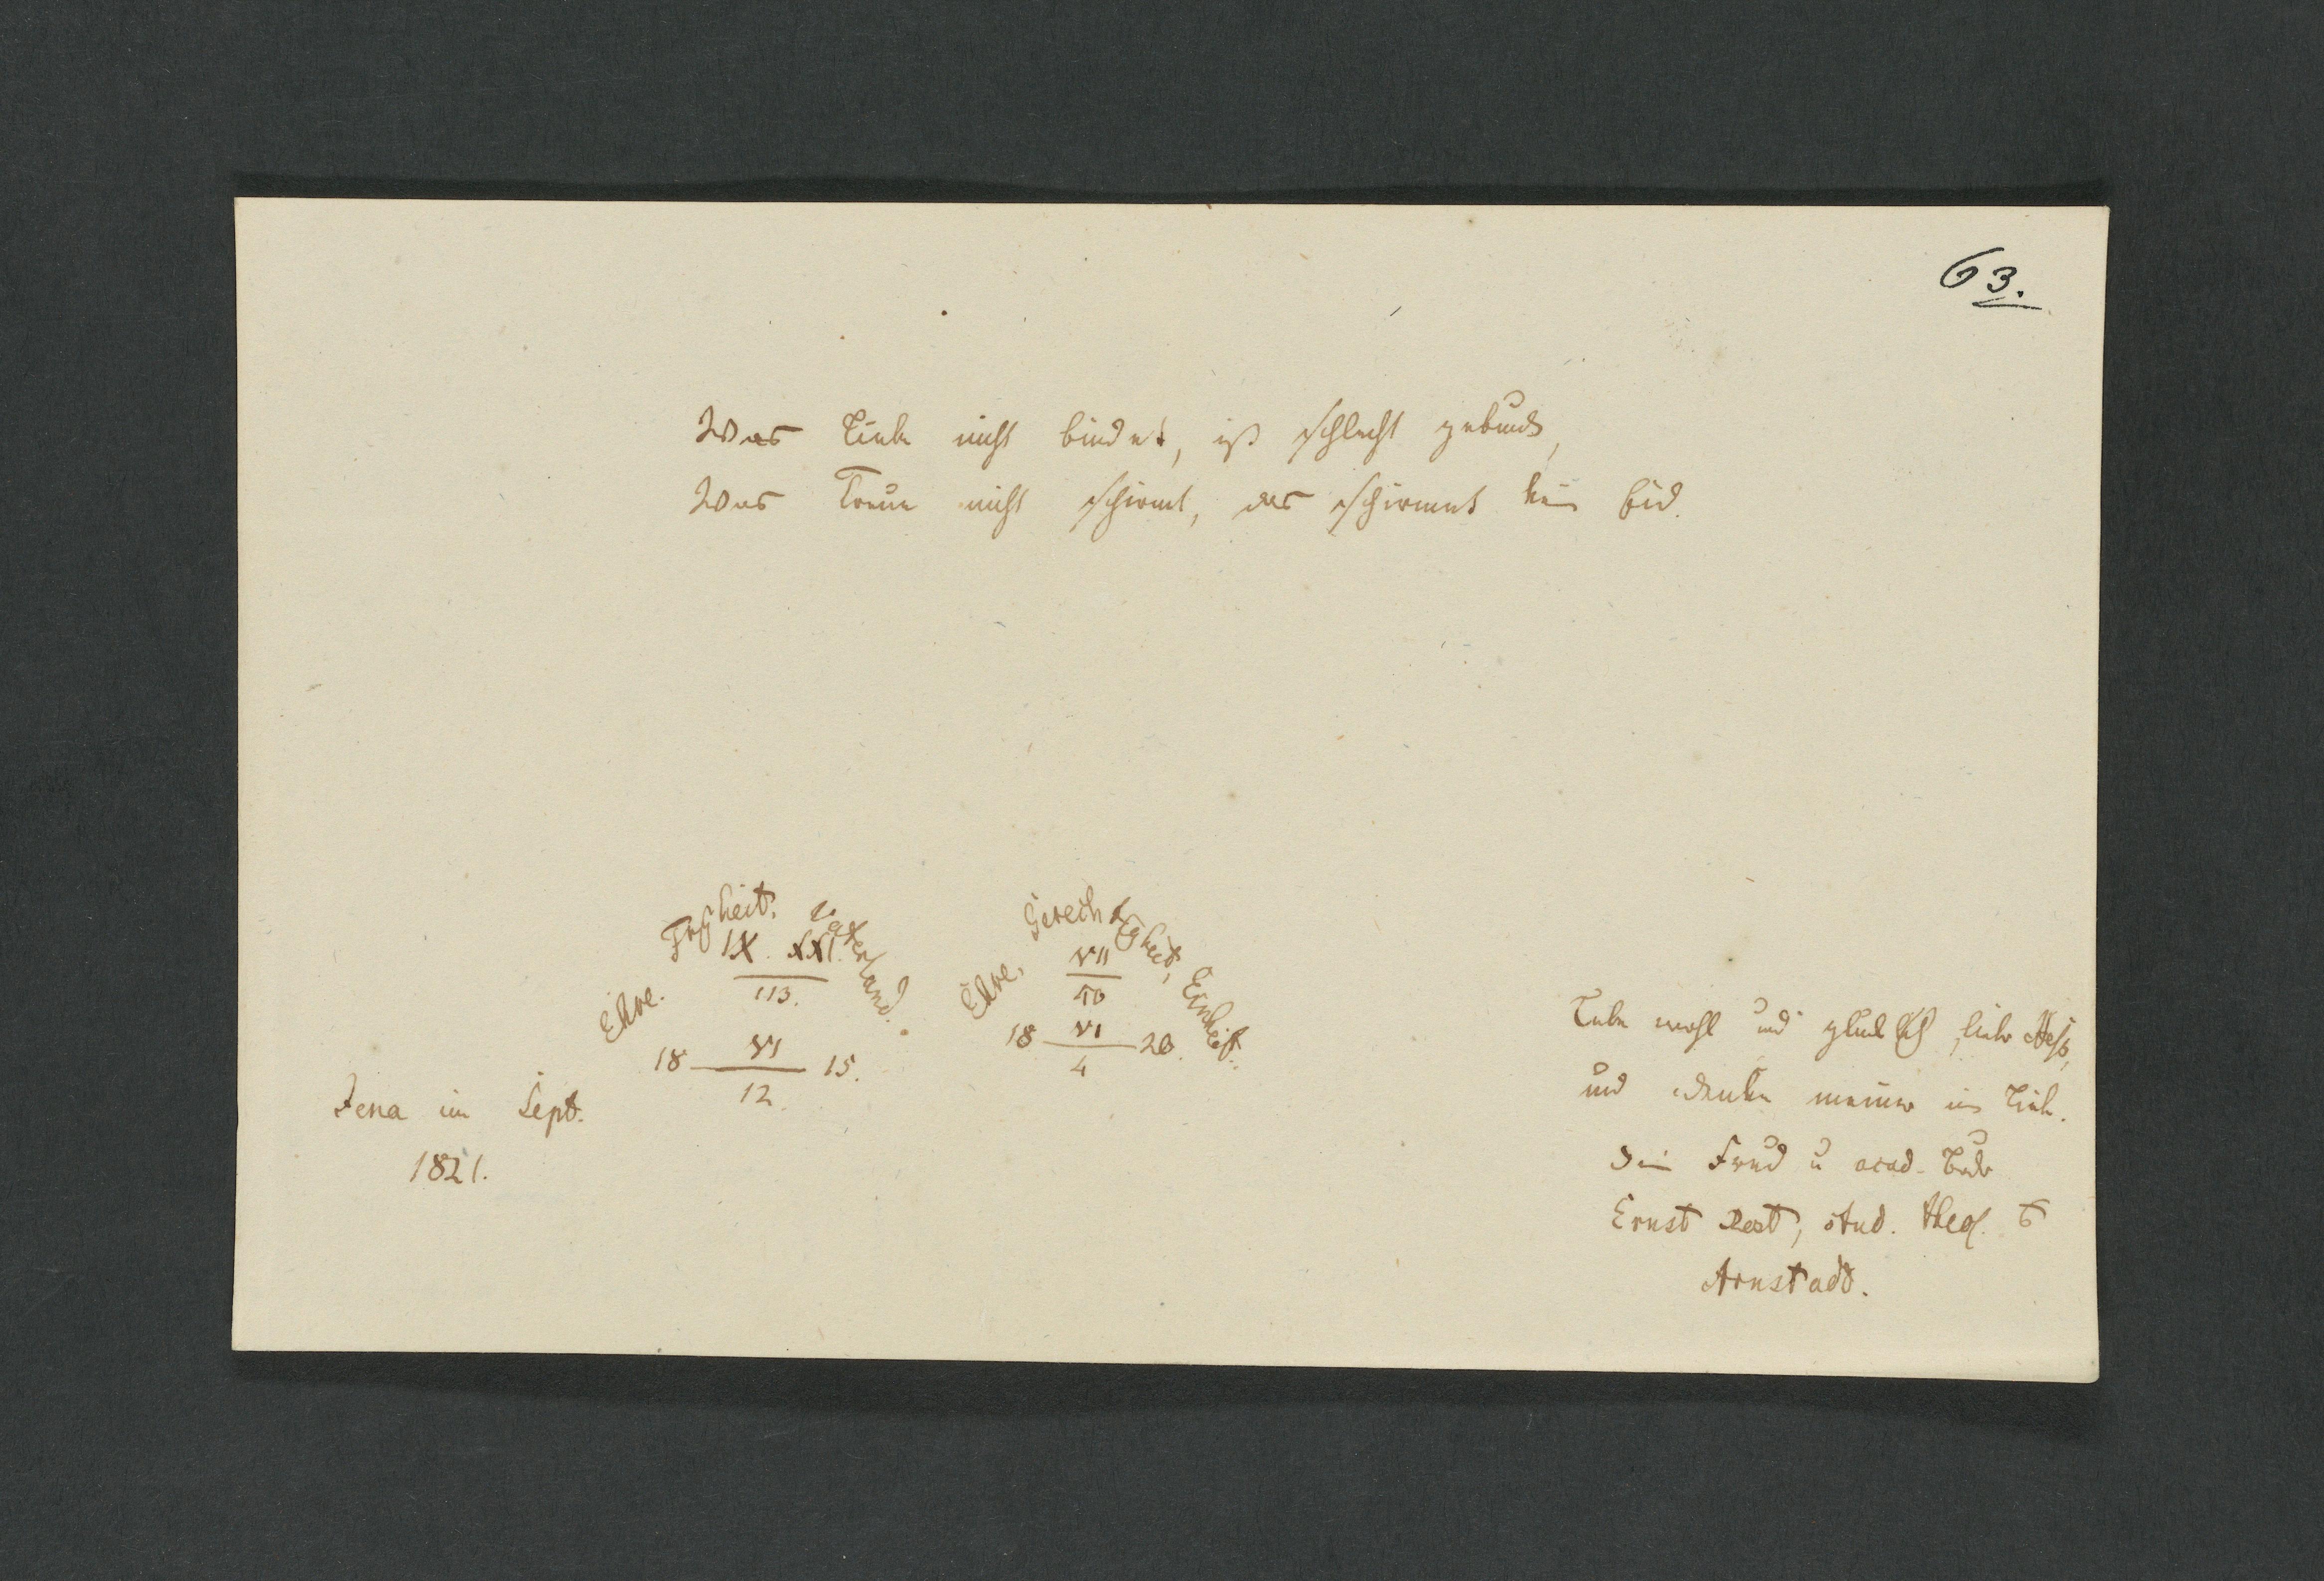 63.
Was Liebe nicht bindet, ist schlecht gebunden,
Was Treue nicht schirmt, das schirmet kein Eid.
Ehre. Freyheit. Vaterland.
IX. XXI.
113.
VI
18 15.
12.
Ehre, Gerechtigkeit, Einheit.
VII
10
VI
18 20.
4
Jena im Sept.
1821.
Lebe wohl und glücklich, lieber Heß,
und denke meiner in Liebe.
Dein Freund u. acad. Bruder
Ernst stud. theol.
Arnstadt.